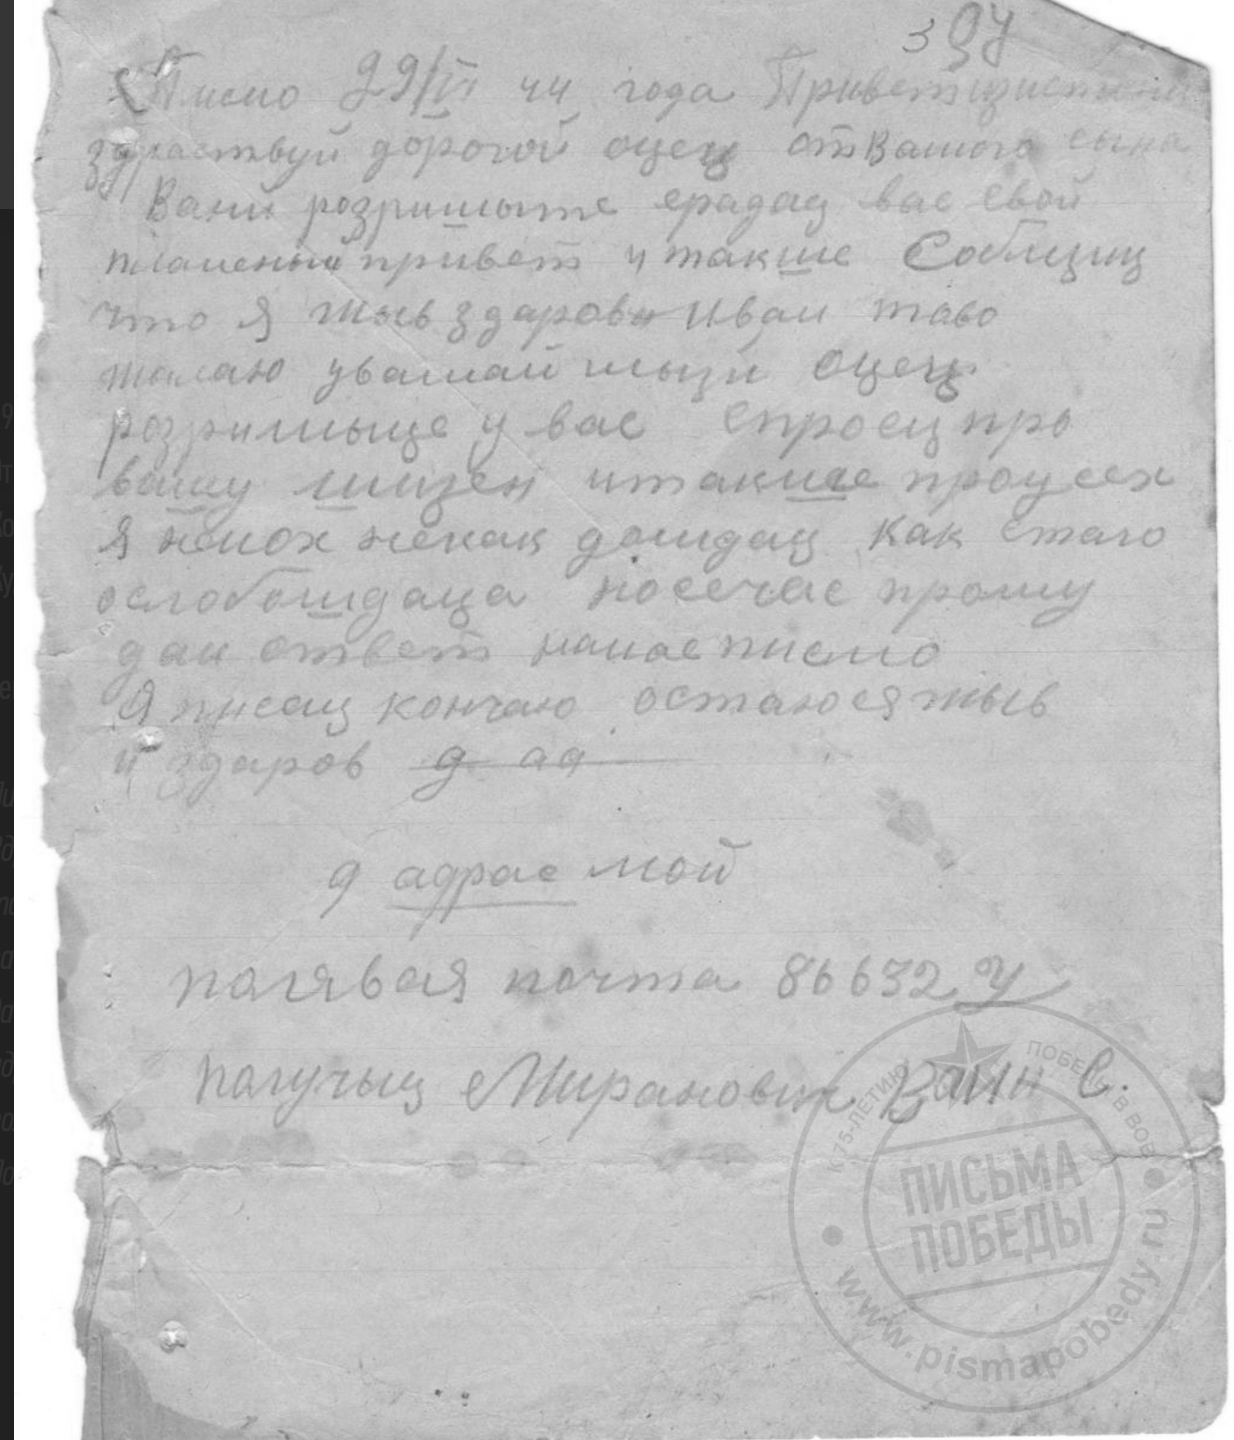 з ЗУ
Писмо 29/VI 44 года Привет
здраствуй дорогой оцец от Вашого сына
Вани розришыте срадац вас свой
пламеный привет и такше Соблщиц
что я жыв здаров и вам таво
жалаю уважаймыйи оцец
розришыце у вас спросиц про
вашу шызен итакше проусех
Я немох некак дошдац как стало
ослобошдаца носечас прошу
дай ответ намое писмо
Я писац кончаю остаюся жыв
и здаров д ад
д адрас мой
палявая почта 86632 У
палучыц Миранович Вани С.
К 75-ЛЕТИЮ ПОБЕДЫ В ВОВ
ПИСЬМА
ПОБЕДЫ
www.pismapobedy.ru